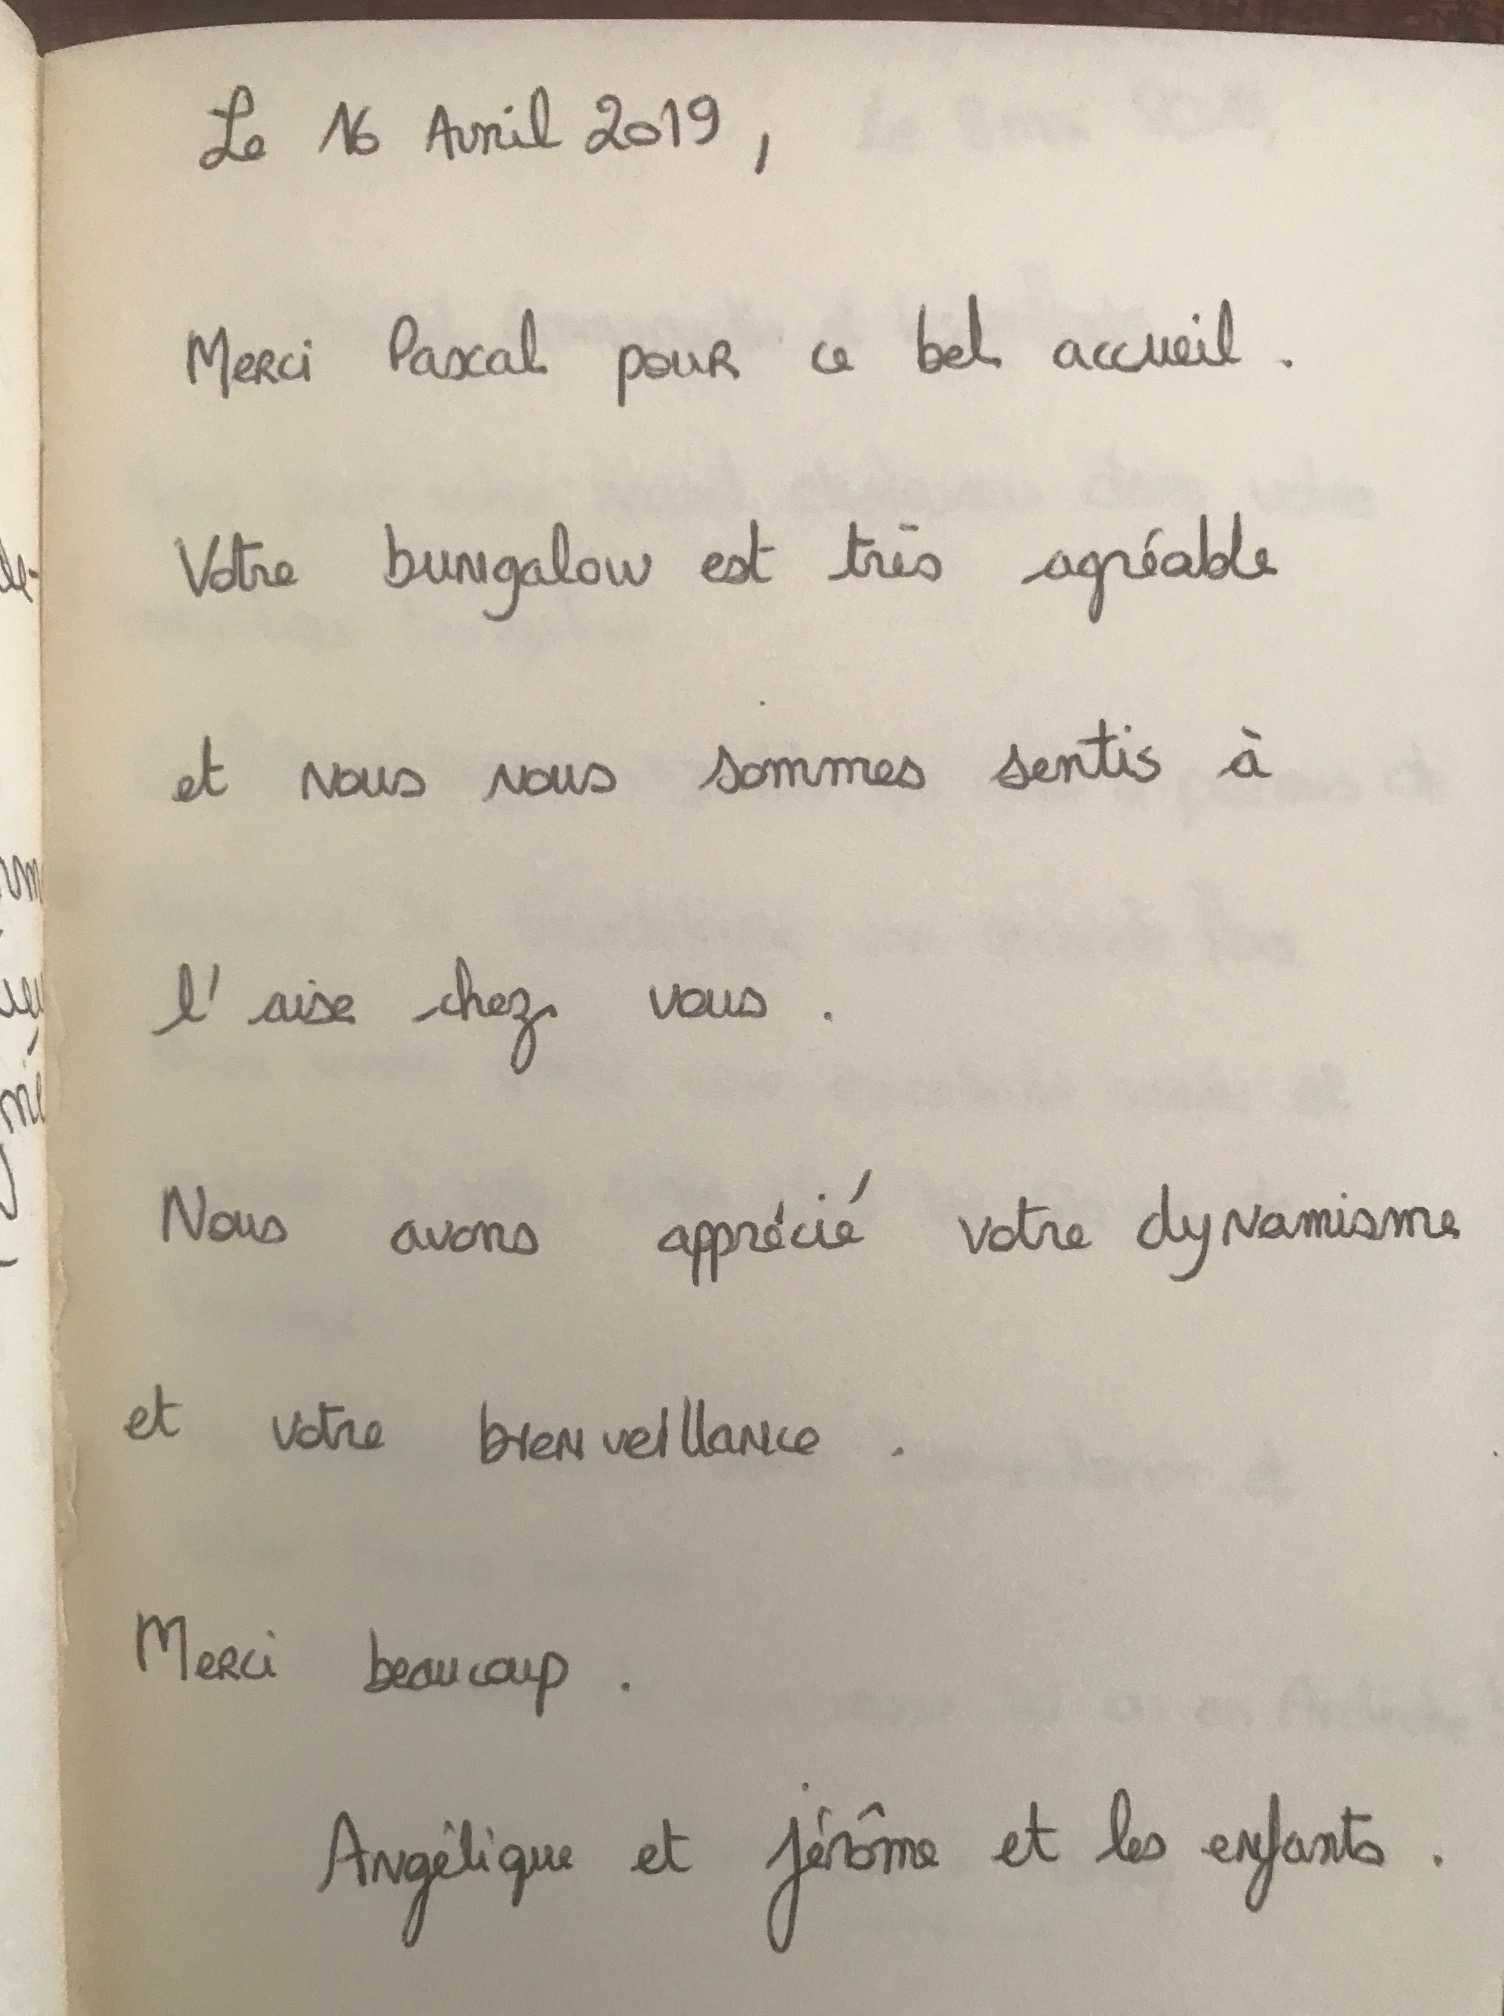 Le 16 Avril 2019,
Merci Pascal pour ce bel accueil.
Votre bungalow est très agréable
et nous nous sommes sentis à
l'aise chez vous.
Nous avons apprécié votre dynamisme
et votre bienveillance.
Merci beaucoup.
Angélique et jérôme et les enfants.